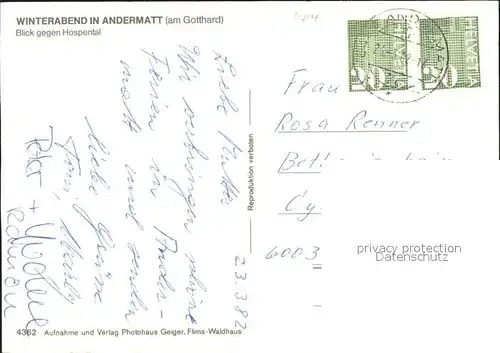 WINTERABEND IN ANDERMATT (am Gotthard)
Blick gegen Hospental
23.3.82
Liebe Mutter
Wir verbringen schöne
Ferien in Ander-
matt und senden
liebe Grüsse
Toni,
Peter + Yvonne
Reproduktion verboten
HELVETIA
20
HELVETIA
20
Frau
Rosa Renner
6003
privacy protection
Datenschutz
4362 Aufnahme und Verlag Photohaus Geiger, Flims-Waldhaus